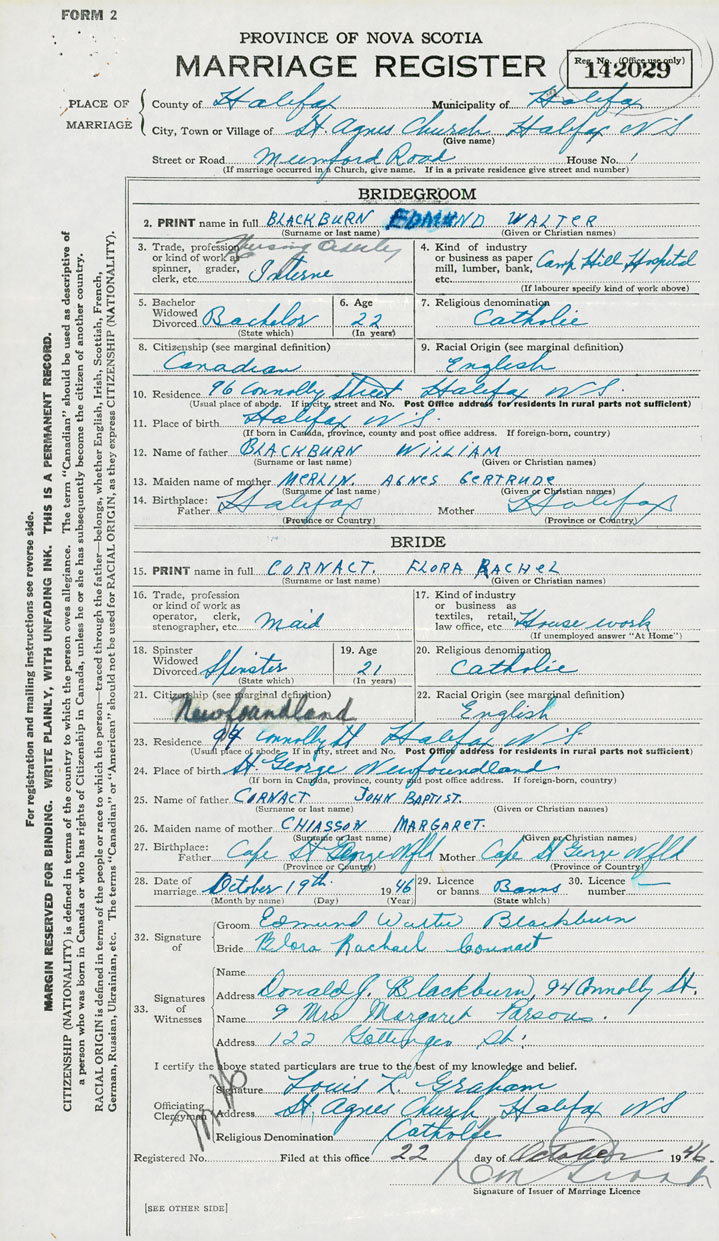 FORM 2
PROVINCE OF NOVA SCOTIA
MARRIAGE REGISTER
Reg. No. (Office use only)
142029
PLACE OF MARRIAGE
County of Halifax Municipality of Halifax
City, Town or Village of St. Agnes Church Halifax N S
(Give name)
Street or Road Mumford Road House No.
(If marriage occurred in a Church, give name. If in a private residence give street and number)
BRIDEGROOM
2. PRINT name in full BLACKBURN EDMUND WALTER
(Surname or last name) (Given or Christian names)
3. Trade, profession or kind of work as spinner, grader, clerk, etc. Nursing Orderly Interne
4. Kind of industry or business as paper mill, lumber, bank, etc. Camp Hill Hospital
(If labourer specify kind of work above)
5. Bachelor Widowed Divorced Bachelor
(State which)
6. Age 22
(In years)
7. Religious denomination Catholic
8. Citizenship (see marginal definition) Canadian
9. Racial Origin (see marginal definition) English
10. Residence 96 Connolly Street Halifax N.S.
(Usual place of abode. If in city, street and No. Post Office address for residents in rural parts not sufficient)
11. Place of birth Halifax N.S.
(If born in Canada, province, county and post office address. If foreign-born, country)
12. Name of father BLACKBURN WILLIAM
(Surname or last name) (Given or Christian names)
13. Maiden name of mother MERLIN. AGNES GERTRUDE
(Surname or last name) (Given or Christian names)
14. Birthplace: Father Halifax Mother Halifax
(Province or Country) (Province or Country)
BRIDE
15. PRINT name in full CORNACT. FLORA RACHEL
(Surname or last name) (Given or Christian names)
16. Trade, profession or kind of work as operator, clerk, stenographer, etc. Maid
17. Kind of industry or business as textiles, retail, law office, etc. House work
(If unemployed answer "At Home")
18. Spinster Widowed Divorced Spinster
(State which)
19. Age 21
(In years)
20. Religious denomination Catholic
21. Citizenship (see marginal definition) Newfoundland
22. Racial Origin (see marginal definition) English
23. Residence 94 Connolly St Halifax N.S.
(Usual place of abode. If in city, street and No. Post Office address for residents in rural parts not sufficient)
24. Place of birth St. George Newfoundland
(If born in Canada, province, county and post office address. If foreign-born, country)
25. Name of father CORNACT JOHN BAPTIST.
(Surname or last name) (Given or Christian names)
26. Maiden name of mother CHIASSON MARGARET.
(Surname or last name) (Given or Christian names)
27. Birthplace: Father Cape St George Nfld Mother Cape St George Nfld
(Province or Country) (Province or Country)
28. Date of marriage October 19th 1946
(Month by name) (Day) (Year)
29. License or banns Banns
(State which)
30. Licence number —
32. Signature of
Groom Edmund Walter Blackburn
Bride Flora Rachael Cornact
33. Signatures of Witnesses
Name
Address Donald J. Blackburn, 94 Connolly St.
Name Mrs Margaret Parsons.
Address 122 Gottingen St.
I certify the above stated particulars are true to the best of my knowledge and belief.
Officiating Clergyman
Signature Louis L Graham
Address St. Agnes Church Halifax N S
Religious Denomination Catholic
Registered No. Filed at this office 22 day of October 1946.
Signature of Issuer of Marriage Licence
[SEE OTHER SIDE]
For registration and mailing instructions see reverse side.
MARGIN RESERVED FOR BINDING. WRITE PLAINLY, WITH UNFADING INK. THIS IS A PERMANENT RECORD.
CITIZENSHIP (NATIONALITY) is defined in terms of the country to which the person owes allegiance. The term "Canadian" should be used as descriptive of
a person who was born in Canada or who has rights of Citizenship in Canada, unless he or she has subsequently become the citizen of another country.
RACIAL ORIGIN is defined in terms of the people or race to which the person—traced through the father—belongs, whether English, Irish, Scottish, French,
German, Russian, Ukrainian, etc. The terms "Canadian" or "American" should not be used for RACIAL ORIGIN, as they express CITIZENSHIP (NATIONALITY).